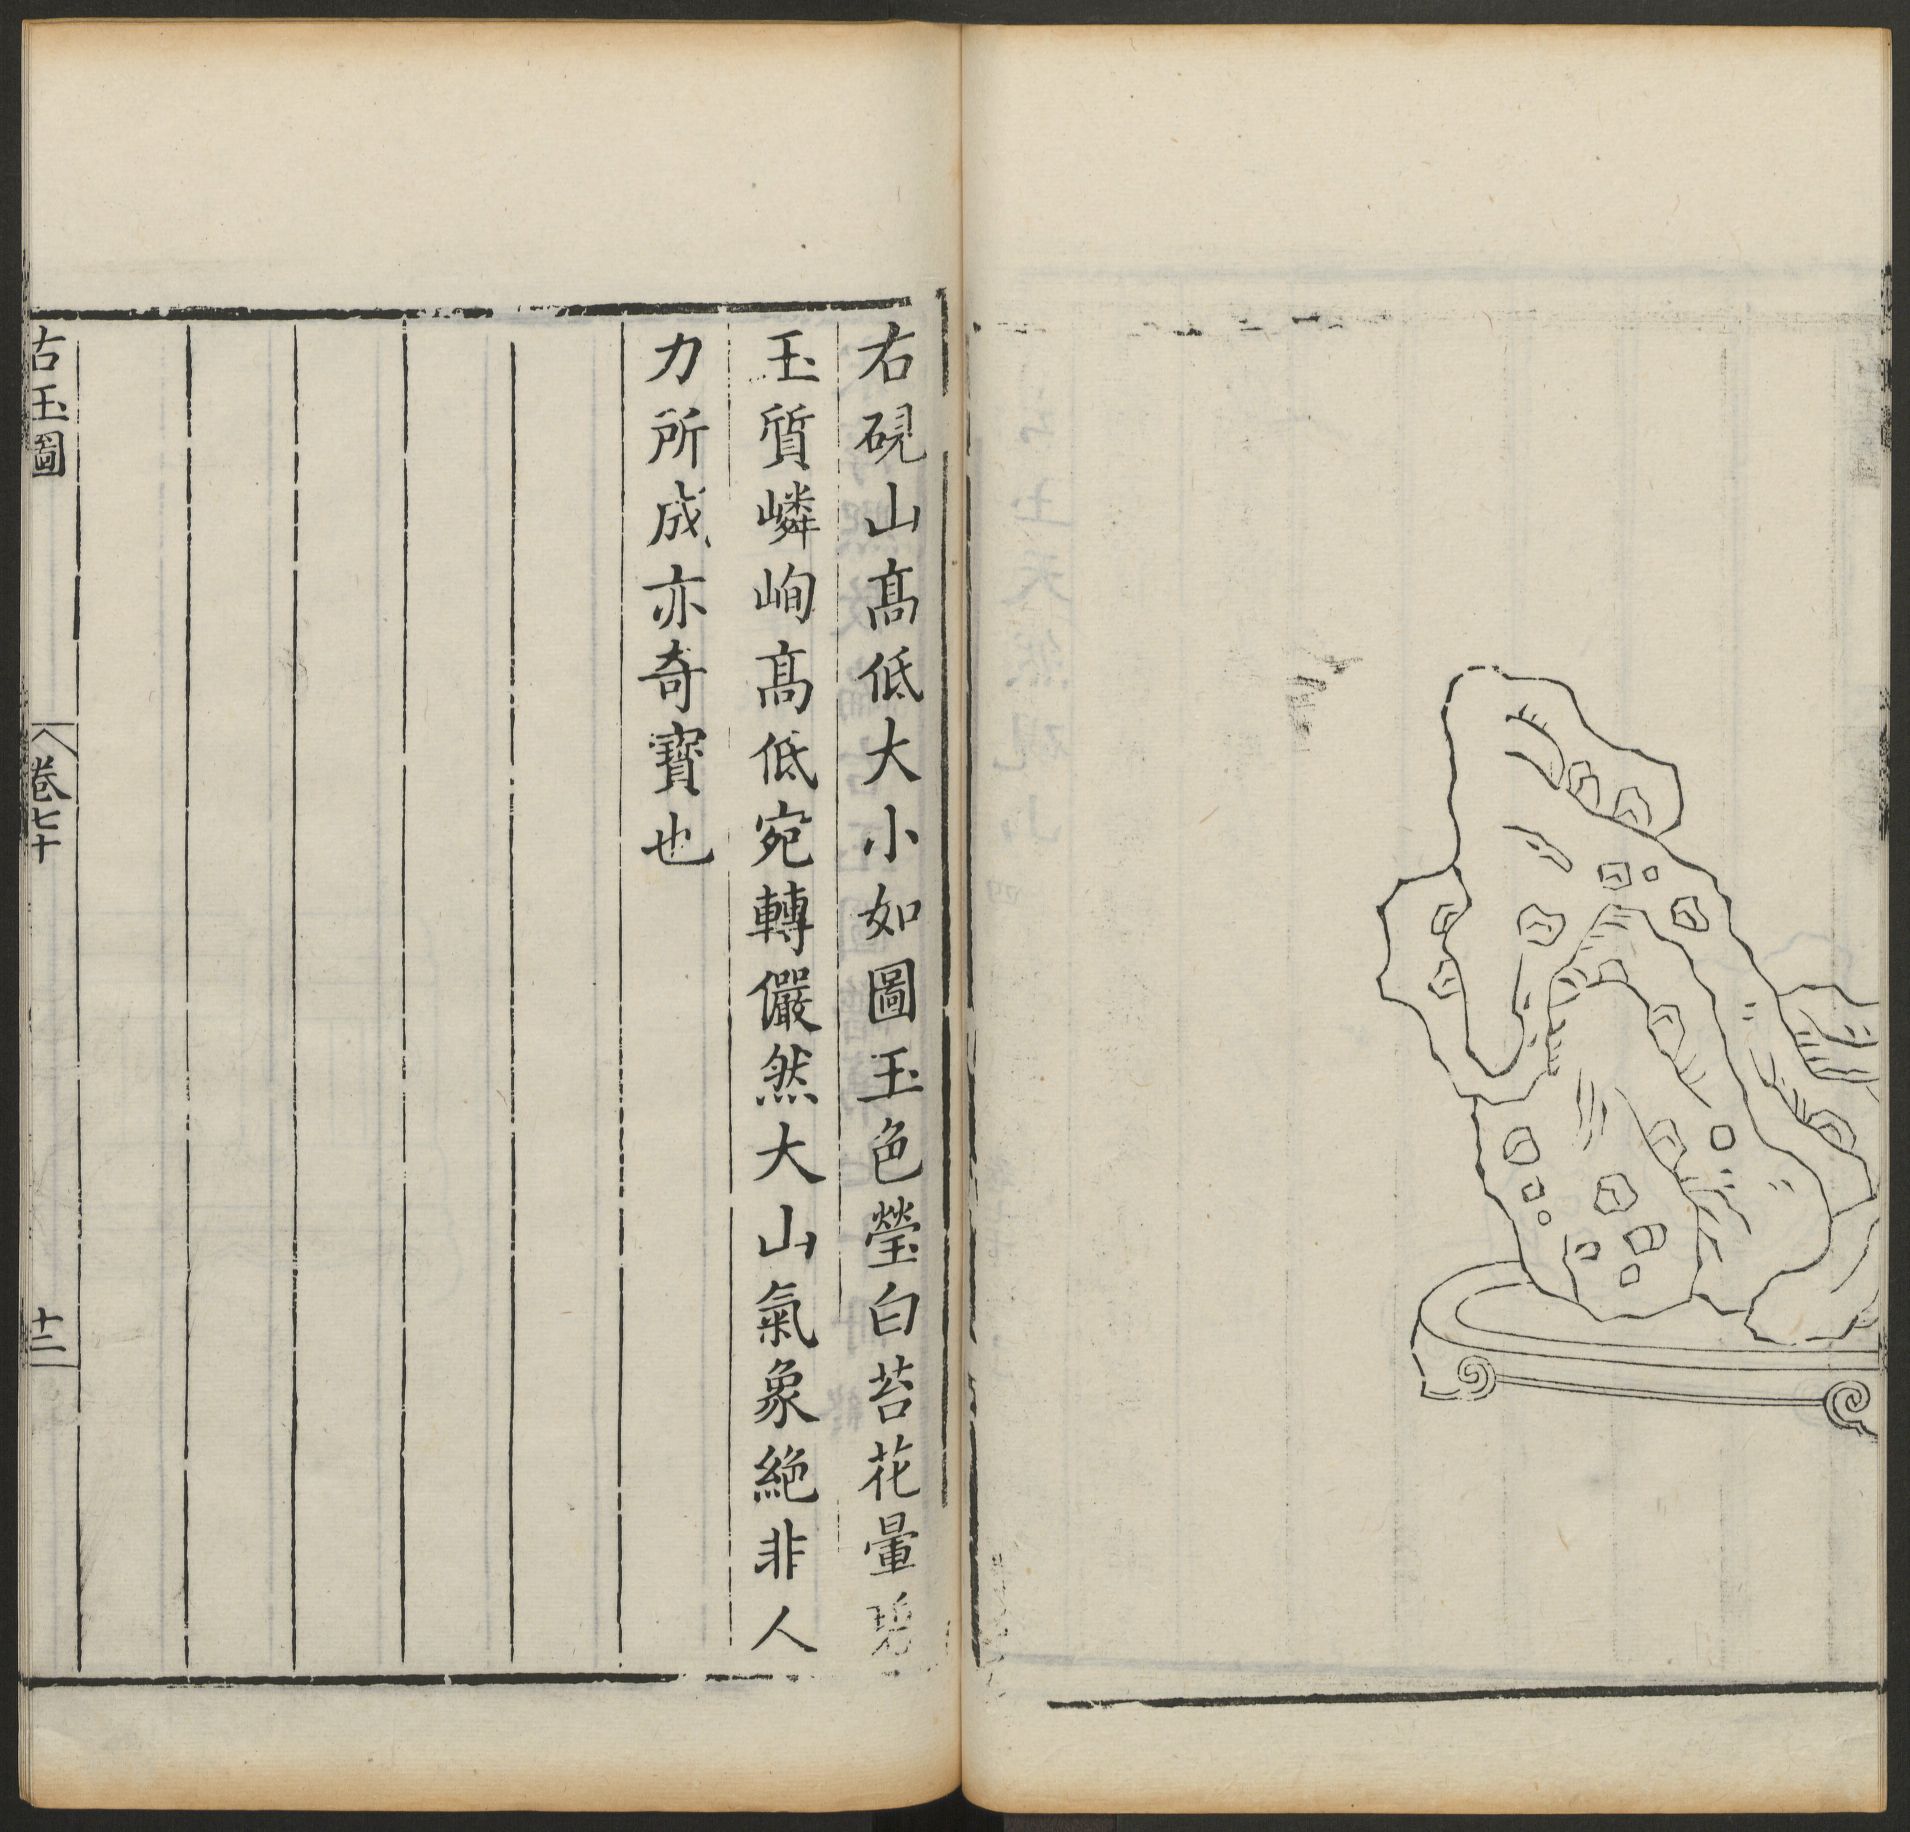 右硯山高低大小如圖玉色瑩白苔花暈
玉質嶙峋高低宛轉儼然大山氣象絕非人
力所成亦奇寶也
古玉圖
卷七十
十二